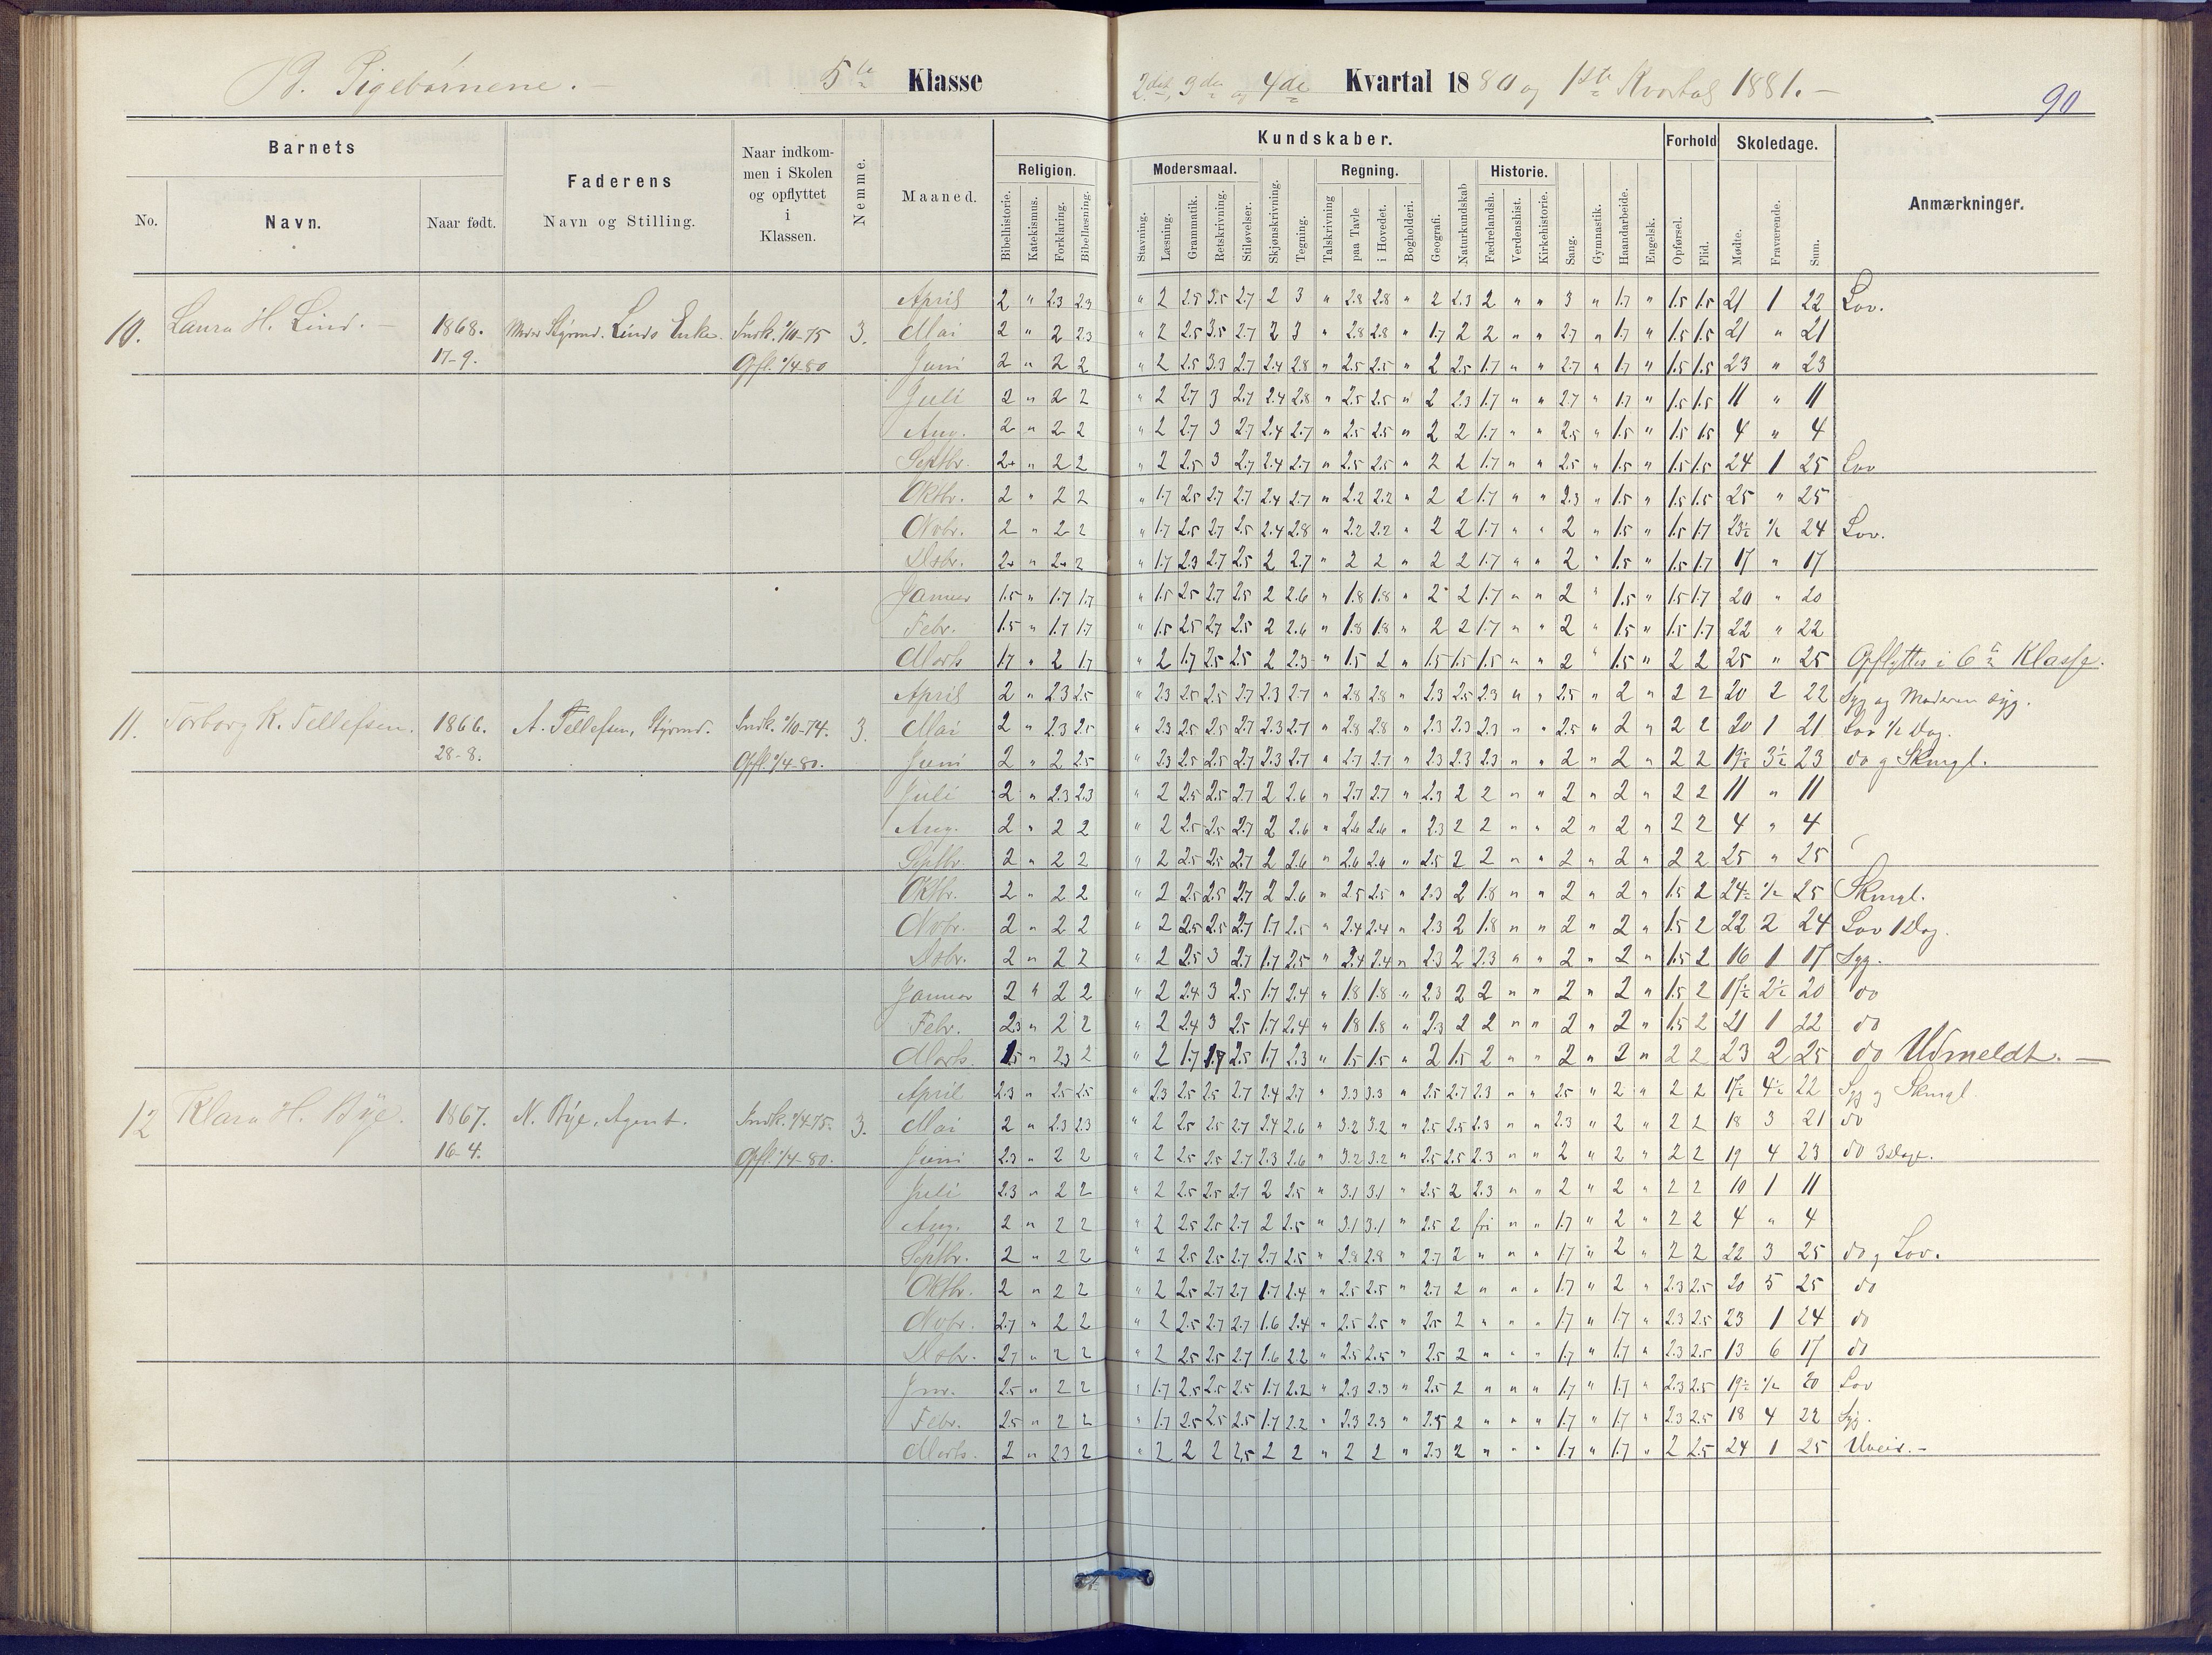 B. Pigebørnene. 5te Klasse 2det, 3die og 4de Kvartal 1880 og 1ste Kvartal 1881.
90
Barnets
No. Navn. Naar født.
Faderens
Navn og Stilling.
Naar indkom-
men i Skolen
og opflyttet
i
Klassen.
Nemme.
Maaned.
Kundskaber.
Religion.
Bibelhistorie. Katekismus. Forklaring. Bibellæsning.
Modersmaal.
Stavning. Læsning. Grammatik. Retskrivning. Stiløvelser.
Skjønskrivning. Tegning.
Regning.
Talskrivning paa Tavle i Hovedet. Bogholderi.
Geografi. Naturkundskab
Historie.
Fædrelandsh. Verdenshist. Kirkehistorie.
Sang. Gymnastik. Haandarbeide. Engelsk.
Forhold
Opførsel. Flid.
Skoledage.
Mødte. Fraværende. Sum.
Anmærkninger.
10. Laura H. Lind. 1868. 17-9. Styrmd. Linds Enke. Indk. 1/10-75 Opfl. 1/4-80 3.
April 2 " 2.3 2.3 " 2 2.5 3.5 2.7 2 3 " 2.8 2.8 " 2 2.3 2 " " 3 " 1.7 " 1.5 1.5 21 1 22 Lov.
Mai 2 " 2 2.3 " 2 2.5 3.5 2.7 2 3 " 2.8 2.8 " 1.7 2 2 " " 2.7 " 1.7 " 1.5 1.5 21 " 21
Juni 2 " 2 2 " 2 2.5 3.3 2.7 2.4 2.8 " 2.5 2.5 " 2 2.5 1.7 " " 2.7 " 1.7 " 1.5 1.5 23 " 23
Juli 2 " 2 2 " 2 2.7 3 2.7 2.4 2.8 " 2.5 2.5 " 2 2.3 1.7 " " 2.7 " 1.7 " 1.5 1.5 11 " 11
Aug. 2 " 2 2 " 2 2.7 3 2.7 2.4 2.7 " 2.5 2.5 " 2 2 1.7 " " 2.5 " 1.5 " 1.5 1.5 4 " 4
Septbr. 2 " 2 2 " 2 2.5 3 2.7 2.4 2.7 " 2.5 2.5 " 2 2 1.7 " " 2.5 " 1.5 " 1.5 1.5 24 1 25 Lov
Oktbr. 2 " 2 2 " 1.7 2.5 2.7 2.7 2.4 2.7 " 2.2 2.2 " 2 2 1.7 " " 2.3 " 1.5 " 1.5 1.5 25 " 25
Novbr. 2 " 2 2 " 1.7 2.5 2.7 2.5 2.4 2.8 " 2.2 2.2 " 2 2 1.7 " " 2 " 1.5 " 1.5 1.7 23½ ½ 24 Lov.
Desbr. 2 " 2 2 " 1.7 2.3 2.7 2.5 2 2.7 " 2 2 " 2 2 1.7 " " 2 " 1.5 " 1.5 1.7 17 " 17
Januar 1.5 " 1.7 1.7 " 1.5 2.5 2.7 2.5 2 2.6 " 1.8 1.8 " 2 2 1.7 " " 2 " 1.5 " 1.5 1.7 20 " 20
Febr. 1.5 " 1.7 1.7 " 1.5 2.5 2.7 2.5 2 2.6 " 1.8 1.8 " 2 2 1.7 " " 2 " 1.5 " 1.5 1.7 22 " 22
Marts 1.7 " 2 1.7 " 2 1.7 2.5 2.5 2 2.3 " 1.5 2 " 1.5 1.5 1.5 " " 2 " 1.5 " 2 2 25 " 25 Opflyttes i 6te Klasse.
11. Torborg K. Tellefsen. 1866. 28-8. A. Tellefsen, Styrmd. Indk. 1/10-74. Opfl. 1/4-80. 3.
April 2 " 2.3 2.5 " 2.3 2.5 2.5 2.7 2.3 2.7 " 2.8 2.8 " 2.3 2.5 2.3 " " 2.5 " 2 " 2 2 20 2 22 Syg og Moderen syg.
Mai 2 " 2.3 2.5 " 2.3 2.5 2.5 2.7 2.3 2.7 " 2.8 2.8 " 2.3 2.3 2.3 " " 2.5 " 2 " 2 2 20 1 21 Lov ½ Dag.
Juni 2 " 2 2.5 " 2.3 2.5 2.5 2.7 2.3 2.7 " 2.7 2.7 " 2.3 2.3 2.3 " " 2 " 2 " 2 2 19½ 3½ 23 do og Skmgl.
Juli 2 " 2.3 2.3 " 2 2.5 2.5 2.7 2 2.6 " 2.7 2.7 " 2.3 2 2 " " 2 " 2 " 2 2 11 " 11
Aug. 2 " 2 2 " 2 2.5 2.5 2.7 2 2.6 " 2.6 2.6 " 2.3 2 2 " " 2 " 2 " 2 2 4 " 4
Septbr. 2 " 2 2 " 2 2.5 2.5 2.7 2 2.6 " 2.6 2.6 " 2.5 2 2 " " 2 " 2 " 2 2 25 " 25
Oktbr. 2 " 2 2 " 2 2.5 2.5 2.7 2 2.6 " 2.5 2.5 " 2.3 2 1.8 " " 2 " 2 " 1.5 2 24½ ½ 25 Skmgl.
Novbr. 2 " 2 2 " 2 2.5 2.5 2.7 1.7 2.5 " 2.4 2.4 " 2.3 2 1.8 " " 2 " 2 " 1.5 2 22 2 24 Lov 1 Dag.
Desbr. 2 " 2 2 " 2 2.5 3 2.7 1.7 2.5 " 2.4 2.4 " 2.3 2 2.3 " " 2 " 2 " 1.5 2 16 1 17 Syg.
Januar 2 " 2 2 " 2 2.4 3 2.5 1.7 2.4 " 1.8 1.8 " 2.3 2 2 " " 2 " 2 " 1.5 2 17½ 2½ 20 do
Febr. 2.3 " 2 2 " 2 2.4 3 2.5 1.7 2.4 " 1.8 1.8 " 2.3 2 2 " " 2 " 2 " 1.5 2 21 1 22 do
Marts. 1.5 " 2.3 2 " 2 1.7 1.7 2.5 1.7 2.3 " 1.5 1.5 " 2 1.5 2 " " 2 " 2 " 2 2 23 2 25 do Udmeldt.
12 Klara H. Bye. 1867. 16-4. N. Bye, Agent. Indk. 1/4-75. Opfl. 1/4-80. 3.
April 2.3 " 2.5 2.5 " 2.3 2.5 2.5 2.7 2.4 2.7 " 3.3 3.3 " 2.5 2.7 2.3 " " 2.5 " 2 " 2 2 17½ 4½ 22 Syg og Skmgl.
Mai 2 " 2.3 2.3 " 2 2.5 2.5 2.7 2.4 2.6 " 3.2 3.2 " 2.5 2.5 2.3 " " 2.3 " 2 " 2 2 18 3 21 do
Juni 2.3 " 2 2 " 2 2.5 2.5 2.7 2.3 2.6 " 3.2 3.2 " 2.5 2.5 2.3 " " 2 " 2 " 2 2 19 4 23 do 3 Dage.
Juli 2.3 " 2 2 " 2 2.5 2.5 2.7 2 2.5 " 3.1 3.1 " 2.5 2 2.3 " " 2 " 2 " 2 2 10 1 11
Aug. 2 " 2 2 " 2 2.5 2.5 2.7 2 2.5 " 3.1 3.1 " 2.5 2 fri " " 1.7 " 2 " 2 2 4 " 4
Septbr. 2 " 2 2 " 2 2.5 2.5 2.7 2.7 2.5 " 2.8 2.8 " 2.7 2 " " " 1.7 " 2 " 2 2 22 3 25 do og Lov.
Oktbr. 2 " 2 2 " 2 2.5 2.7 2.7 1.7 2.4 " 2.5 2.5 " 2.7 2 " " " 1.7 " 2 " 2.3 2.5 20 5 25 do
Novbr. 2.7 " 2 2 " 2 2.5 2.7 2.7 1.6 2.4 " 2.5 2.5 " 2.5 2 " " " 1.7 " 1.7 " 2.3 2.5 23 1 24 do
Desbr. 2.7 " 2 2 " 2 2.5 2.5 2.7 1.6 2.2 " 2.5 2.5 " 2.5 2 " " " 1.7 " 1.7 " 2.3 2.5 13 6 17 do
Jnr. 2.5 " 2 2 " 1.7 2.5 2.5 2.5 1.7 2.2 " 2.3 2.3 " 2.5 2 " " " 1.7 " 1.7 " 2.3 2.5 19½ ½ 20 Lov
Febr. 2.5 " 2 2 " 1.7 2.5 2.5 2.5 1.7 2.2 " 2.3 2.3 " 2.5 2 " " " 1.7 " 1.7 " 2.3 2.5 18 4 22 Syg.
Marts. 2 " 2.3 2 " 2 2 2 2.5 2 2 " 2 2 " 2.3 2 " " " 1.7 " 1.7 " 2 2.5 24 1 25 Uveir.